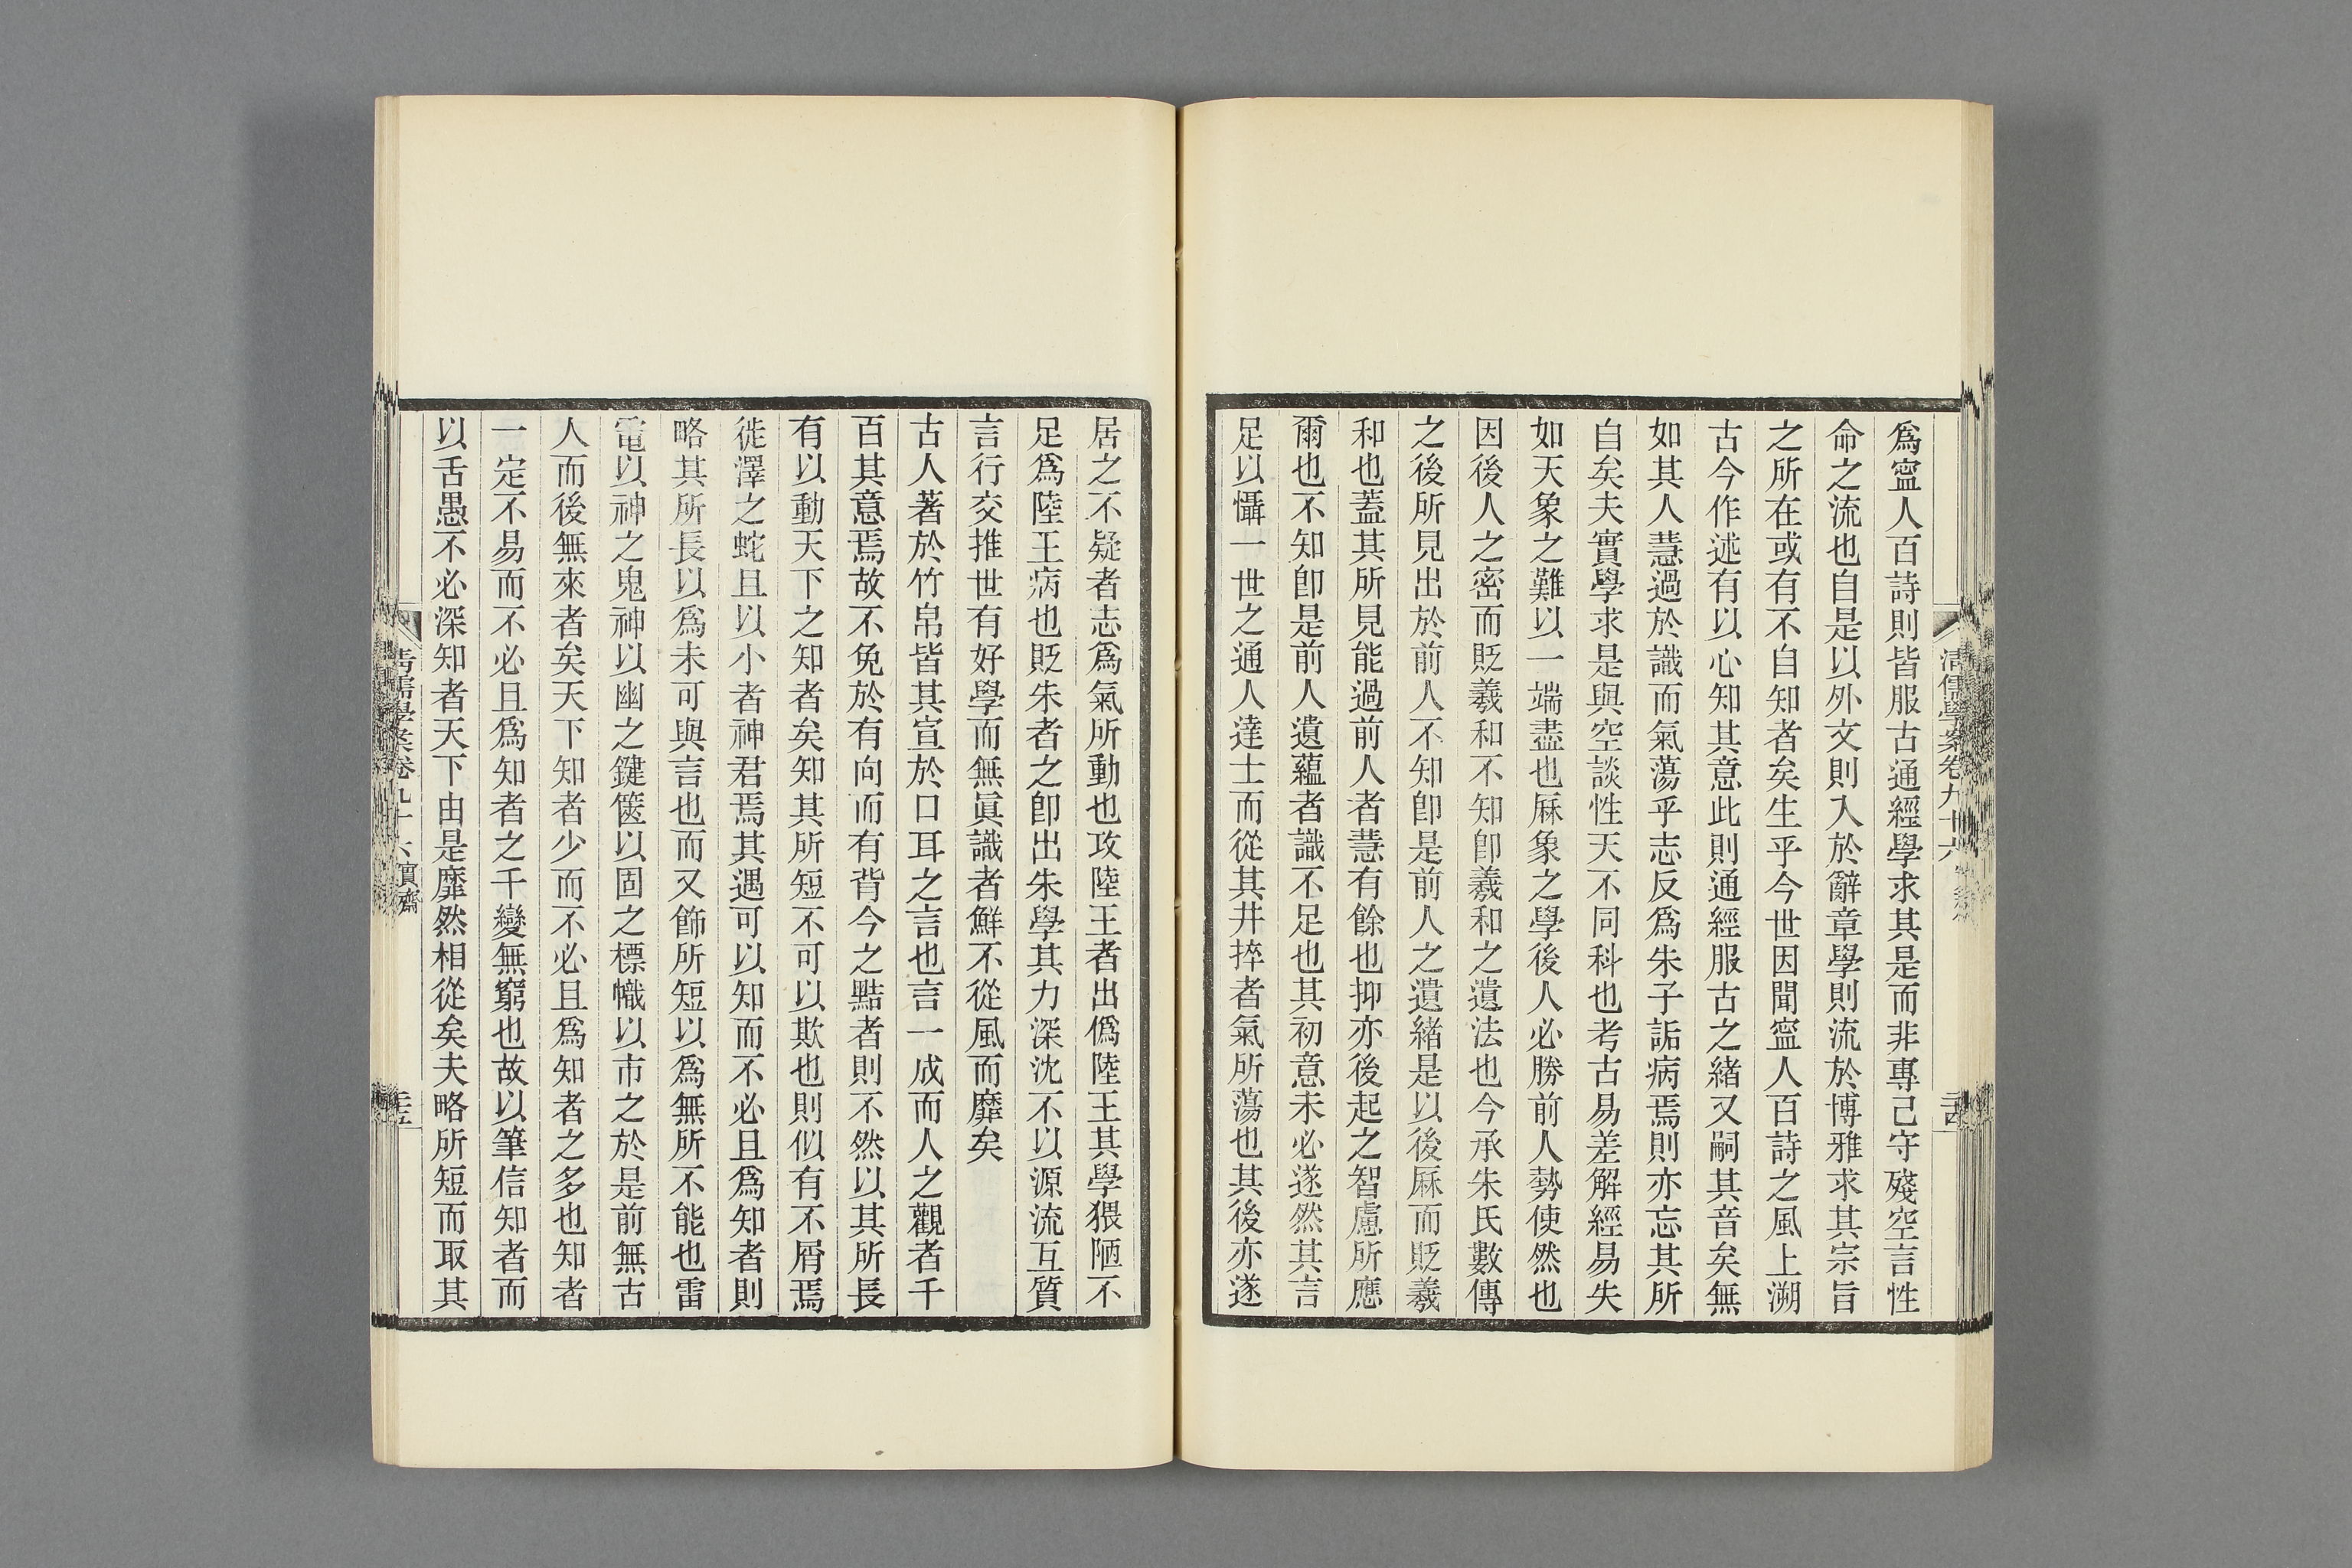 清儒學案卷九十六
為寍人百詩則皆服古通經學求其是而非專己守殘空言性
命之流也自是以外文則入於辭章學則流於博雅求其宗旨
之所在或有不自知者矣生乎今世因聞寍人百詩之風上溯
古今作述有以心知其意此則通經服古之緒又嗣其音矣無
如其人慧過於識而氣蕩乎志反為朱子詬病焉則亦忘其所
自矣夫實學求是與空談性天不同科也考古易差解經易失
如天象之難以一端盡也厤象之學後人必勝前人勢使然也
因後人之密而貶羲和不知卽羲和之遺法也今承朱氏數傳
之後所見出於前人不知卽是前人之遺緒是以後厤而貶羲
和也蓋其所見能過前人者慧有餘也抑亦後起之智慮所應
爾也不知卽是前人遺蘊者識不足也其初意未必遂然其言
足以懾一世之通人達士而從其井捽者氣所蕩也其後亦遂
居之不疑者志為氣所動也攻陸王者出偽陸王其學猥陋不
足為陸王病也貶朱者之卽出朱學其力深沈不以源流互質
言行交推世有好學而無眞識者鮮不從風而靡矣
古人著於竹帛皆其宣於口耳之言也言一成而人之觀者千
百其意焉故不免於有向而有背今之黠者則不然以其所長
有以動天下之知者矣知其所短不可以欺也則似有不屑焉
徙澤之蛇且以小者神君焉其遇可以知而不必且為知者則
略其所長以為未可與言也而又飾所短以為無所不能也雷
電以神之鬼神以幽之鍵篋以固之標幟以市之於是前無古
人而後無來者矣天下知者少而不必且為知者之多也知者
一定不易而不必且為知者之千變無窮也故以筆信知者而
以舌愚不必深知者天下由是靡然相從矣夫略所短而取其
清儒學案卷九十六 實齋